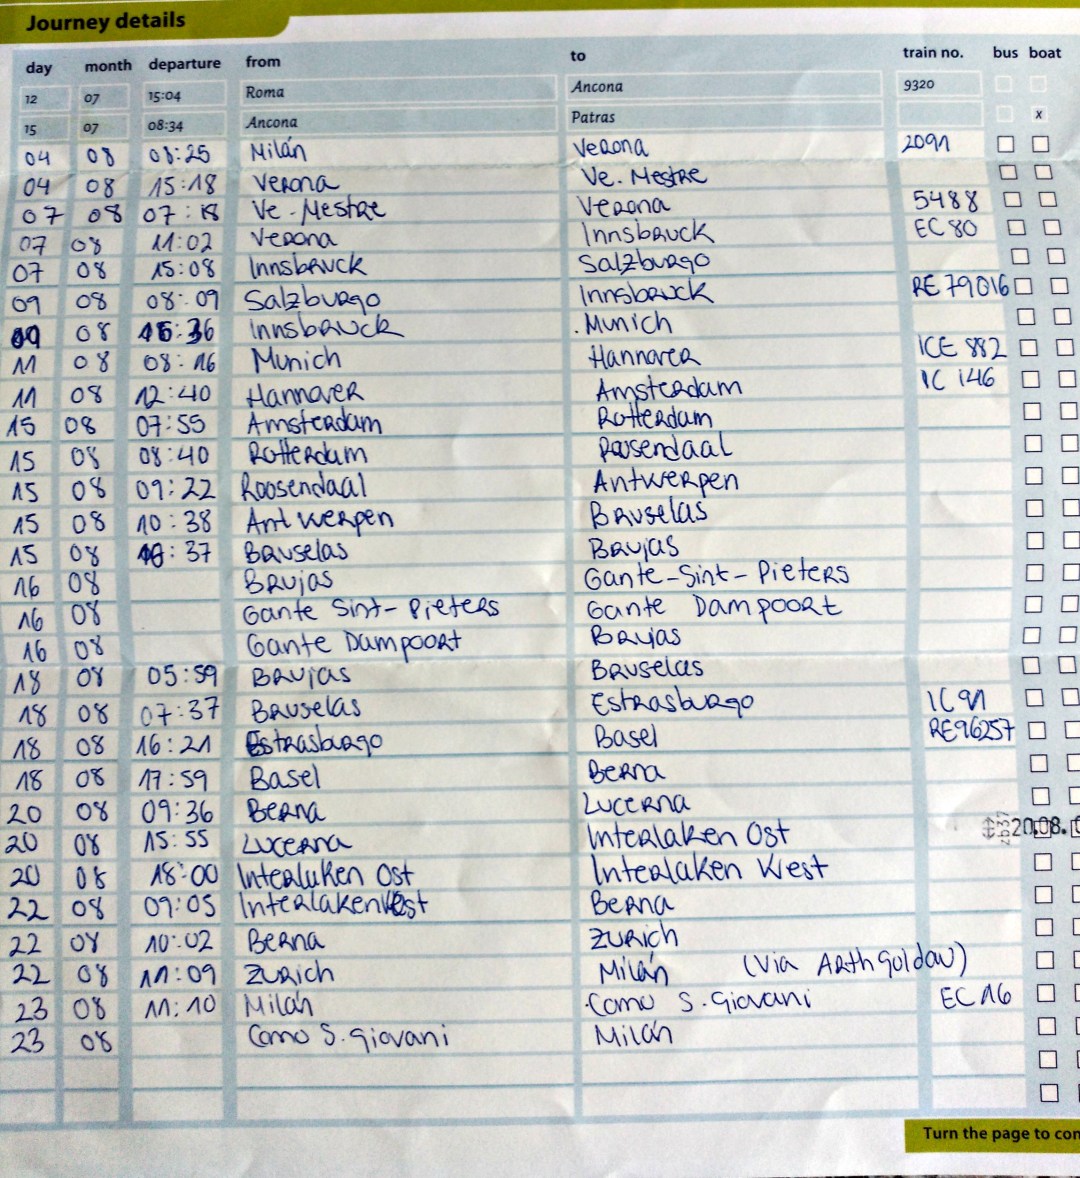 Journey details
day month departure from to train no. bus boat
12 07 15:04 Roma Ancona 9320
15 07 08:34 Ancona Patras x
04 08 08:25 Milán Verona 2091
04 08 15:18 Verona Ve. Mestre
07 08 07:18 Ve. Mestre Verona 5488
07 08 11:02 Verona Innsbruck EC 80
07 08 15:08 Innsbruck Salzburgo
09 08 08:09 Salzburgo Innsbruck RE 79016
09 08 15:36 Innsbruck Munich
11 08 08:16 Munich Hannover ICE 882
11 08 12:40 Hannover Amsterdam IC 146
15 08 07:55 Amsterdam Rotterdam
15 08 08:40 Rotterdam Roosendaal
15 08 09:22 Roosendaal Antwerpen
15 08 10:38 Antwerpen Bruselas
15 08 :37 Bruselas Brujas
16 08 Brujas Gante-Sint-Pieters
16 08 Gante Sint-Pieters Gante Dampoort
16 08 Gante Dampoort Brujas
18 08 05:59 Brujas Bruselas
18 08 07:37 Bruselas Estrasburgo IC 91
18 08 16:21 Estrasburgo Basel RE96257
18 08 17:59 Basel Berna
20 08 09:36 Berna Lucerna
20.08.
20 08 15:55 Lucerna Interlaken Ost
20 08 18:00 Interlaken Ost Interlaken West
22 08 09:05 Interlaken West Berna
22 08 10:02 Berna Zurich
22 08 11:09 Zurich Milán (Via Arth goldau)
23 08 11:10 Milán Como S. Giovani EC 16
23 08 Como S. Giovani Milán
Turn the page to con